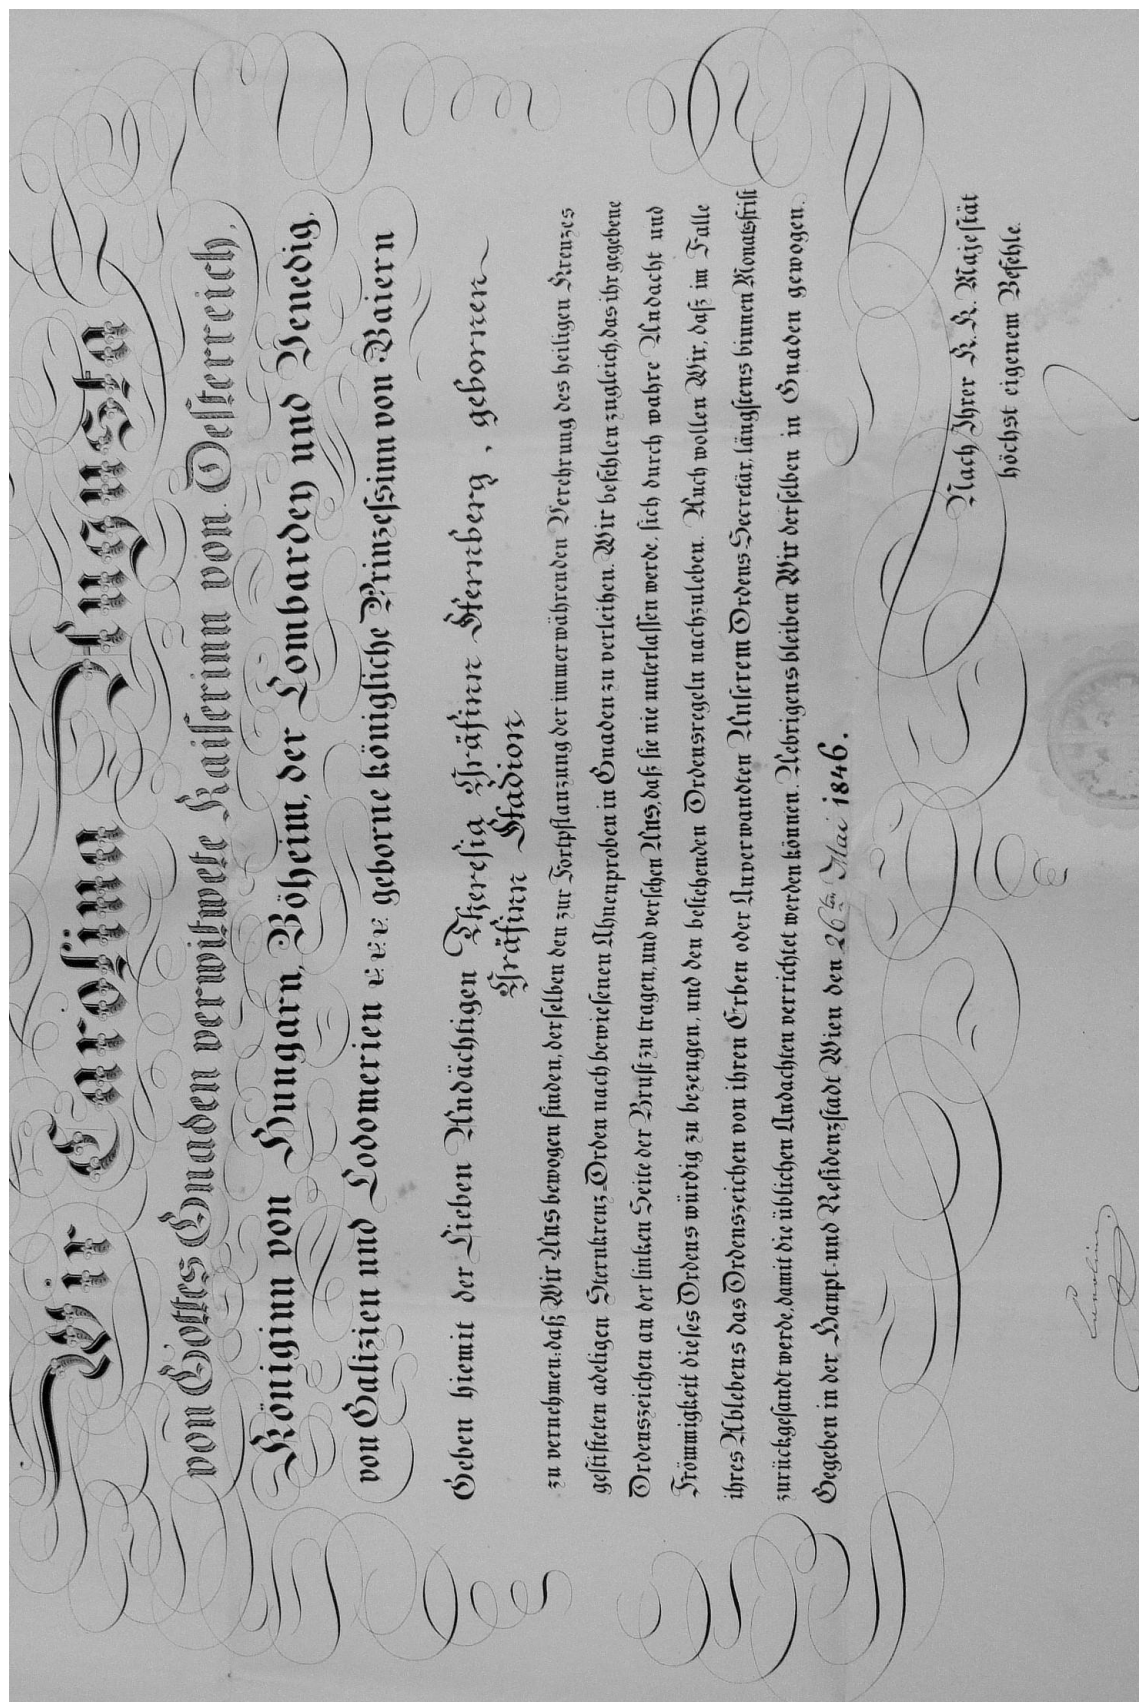 Wir Carolina Augusta
von Gottes Gnaden verwitwete Kaiserinn von Oesterreich,
Königinn von Hungarn, Böheim, der Lombardey und Venedig,
von Galizien und Lodomerien &.&.&. geborne königliche Prinzessinn von Baiern
Geben hiemit der Lieben Andächtigen Theresia Gräfinn Sternberg, gebornen
Gräfinn Stadion
zu vernehmen: daß Wir Uns bewogen finden, derselben den zur Fortpflanzung der immerwährenden Verehrung des heiligen Kreuzes
gestifteten adeligen Sternkreuz-Orden nach bewiesenen Ahnenproben in Gnaden zu verleihen. Wir befehlen zugleich, das ihr gegebene
Ordenszeichen an der linken Seite der Brust zu tragen, und versehen Uns, daß sie nie unterlassen werde, sich durch wahre Andacht und
Frömmigkeit dieses Ordens würdig zu bezeugen, und den bestehenden Ordensregeln nachzuleben. Auch wollen Wir, daß im Falle
ihres Ablebens das Ordenszeichen von ihren Erben oder Anverwandten Unserem Ordens Secretär, längstens binnen Monatsfrist
zurückgesandt werde, damit die üblichen Andachten verrichtet werden können. Uebrigens bleiben Wir derselben in Gnaden gewogen.
Gegeben in der Haupt- und Residenzstadt Wien den 26ten Mai 1846.
Nach Ihrer K. K. Majestät
höchst eigenem Befehle.
Carolina